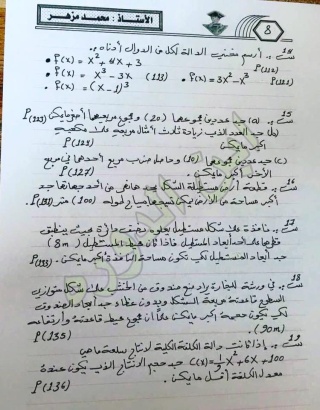 الأستاذ: محمد مزهر
8
س14 :. أرسم منحني الدالة لكل من الدوال أدناه :.
• f(x) = x² + 4x + 3
• f(x) = x³ - 3x (113) • f(x) = 3x² - x³ P(121)
• f(x) = (x-1)³
س15 :. (a) جد عددين مجموعهما (20) و مجموع مربعيهما أصغر مايمكن P(123)
(b) جد العدد الذي زيادة ثالث أمثال مربعه على مكعبه
أكبر مايمكن P(129)
(c) جد عددين مجموعهما (10) وحاصل ضرب مربع أحدهما في مربع
الآخر أكبر مايمكن. P(127)
س16 :. قطعة أرض مستطيلة الشكل يحد من أحد جهاتها جد
أكبر مساحة من الأرض يمكن تسييجها بسياج طوله (100) متر P(131)
س17 :. نافذة على شكل مستطيل يعلوه نصف دائرة بحيث ينطبق
قطرها على أحد أبعاد المستطيل فاذا كان محيط المستطيل (8 m)
جد أبعاد المستطيل لكي تكون مساحة النافذة أكبر مايمكن. P(133)
س18 :. في ورشة للنجارة يراد صنع صندوق من الخشب على شكل متوازي
السطوح قاعدته مربعة الشكل وبدون غطاء جد أبعاد الصندوق
لكي يكون حجمه أكبر مايمكن علماً أن مجموع محيط قاعدته وأرتفاعه
(90m). P(135)
س19 :. إذا كانت دالة الكلفة الكلية لإنتاج سلعة ما هي
C(x) = x² + 6x + 100 جد حجم الإنتاج الذي يكون عنده
معدل الكلفة أقل مايمكن. P(136)